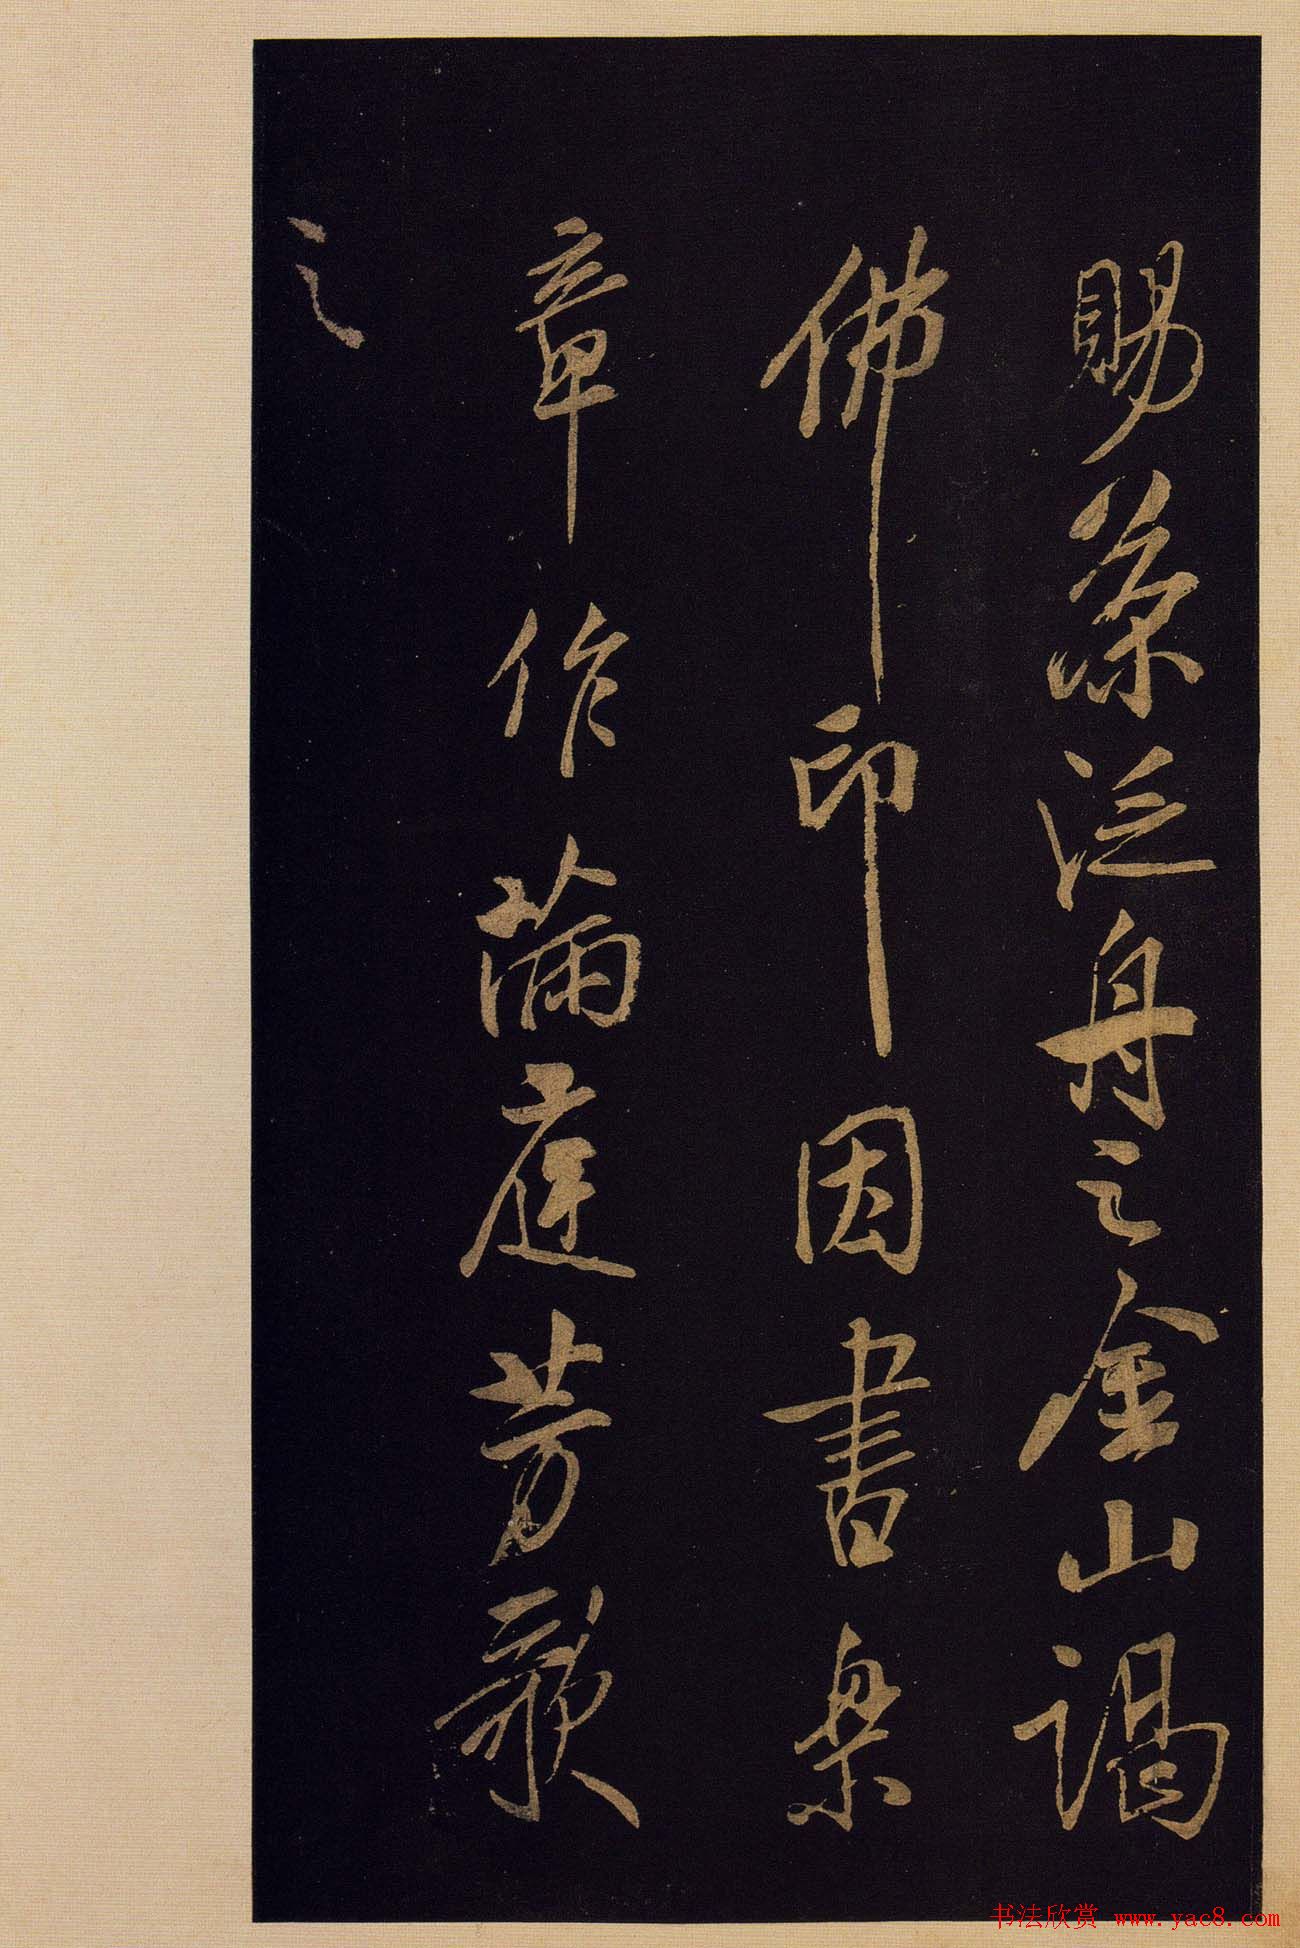 賜茶泛舟之金山謁
佛印因書樂
章作滿庭芳歌
之
书法欣赏 www.yac8.com